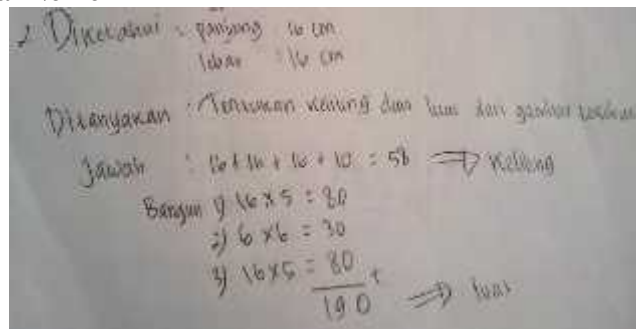 2. Diketahui : panjang 16 cm
lebar : 16 cm
Ditanyakan : Tentukan keliling dan luas dari gambar tersebut
Jawab : 16 + 16 + 16 + 10 = 58 ⇒ Keliling
Bangun 1) 16 x 5 = 80
2) 6 x 6 = 30
3) 16 x 5 = 80 +
190 ⇒ luas